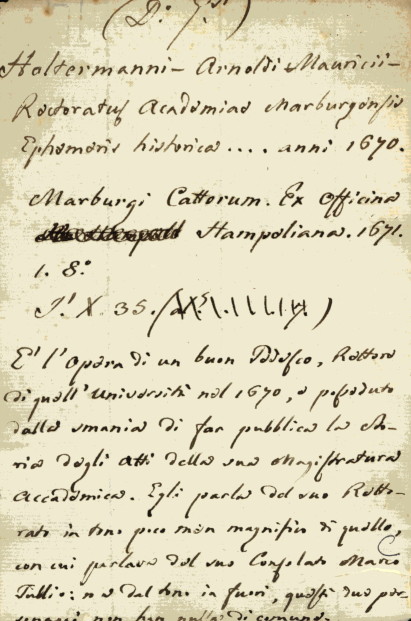 Holtermanni – Arnoldi Mauricii –
Rectoratus Academiae Marburgensis
Ephemeris historica .... anni 1670.
Marburgi Cattorum. Ex Officina
Stampeliana. 1671.
1. 8.°
35.
E' l'opera di un buon Tedesco, Rettore
di quell'Università nel 1670, e posseduto
dalla smania di far pubblica la sto-
ria degli Atti della sua Magistratura
Accademica. Egli parla del suo Retto-
rato in tono poco men magnifico di quello,
con cui parlava del suo Consolato Marco
Tullio: ma dal tono in fuori, questi due per-
sonaggi non han nulla di comune.